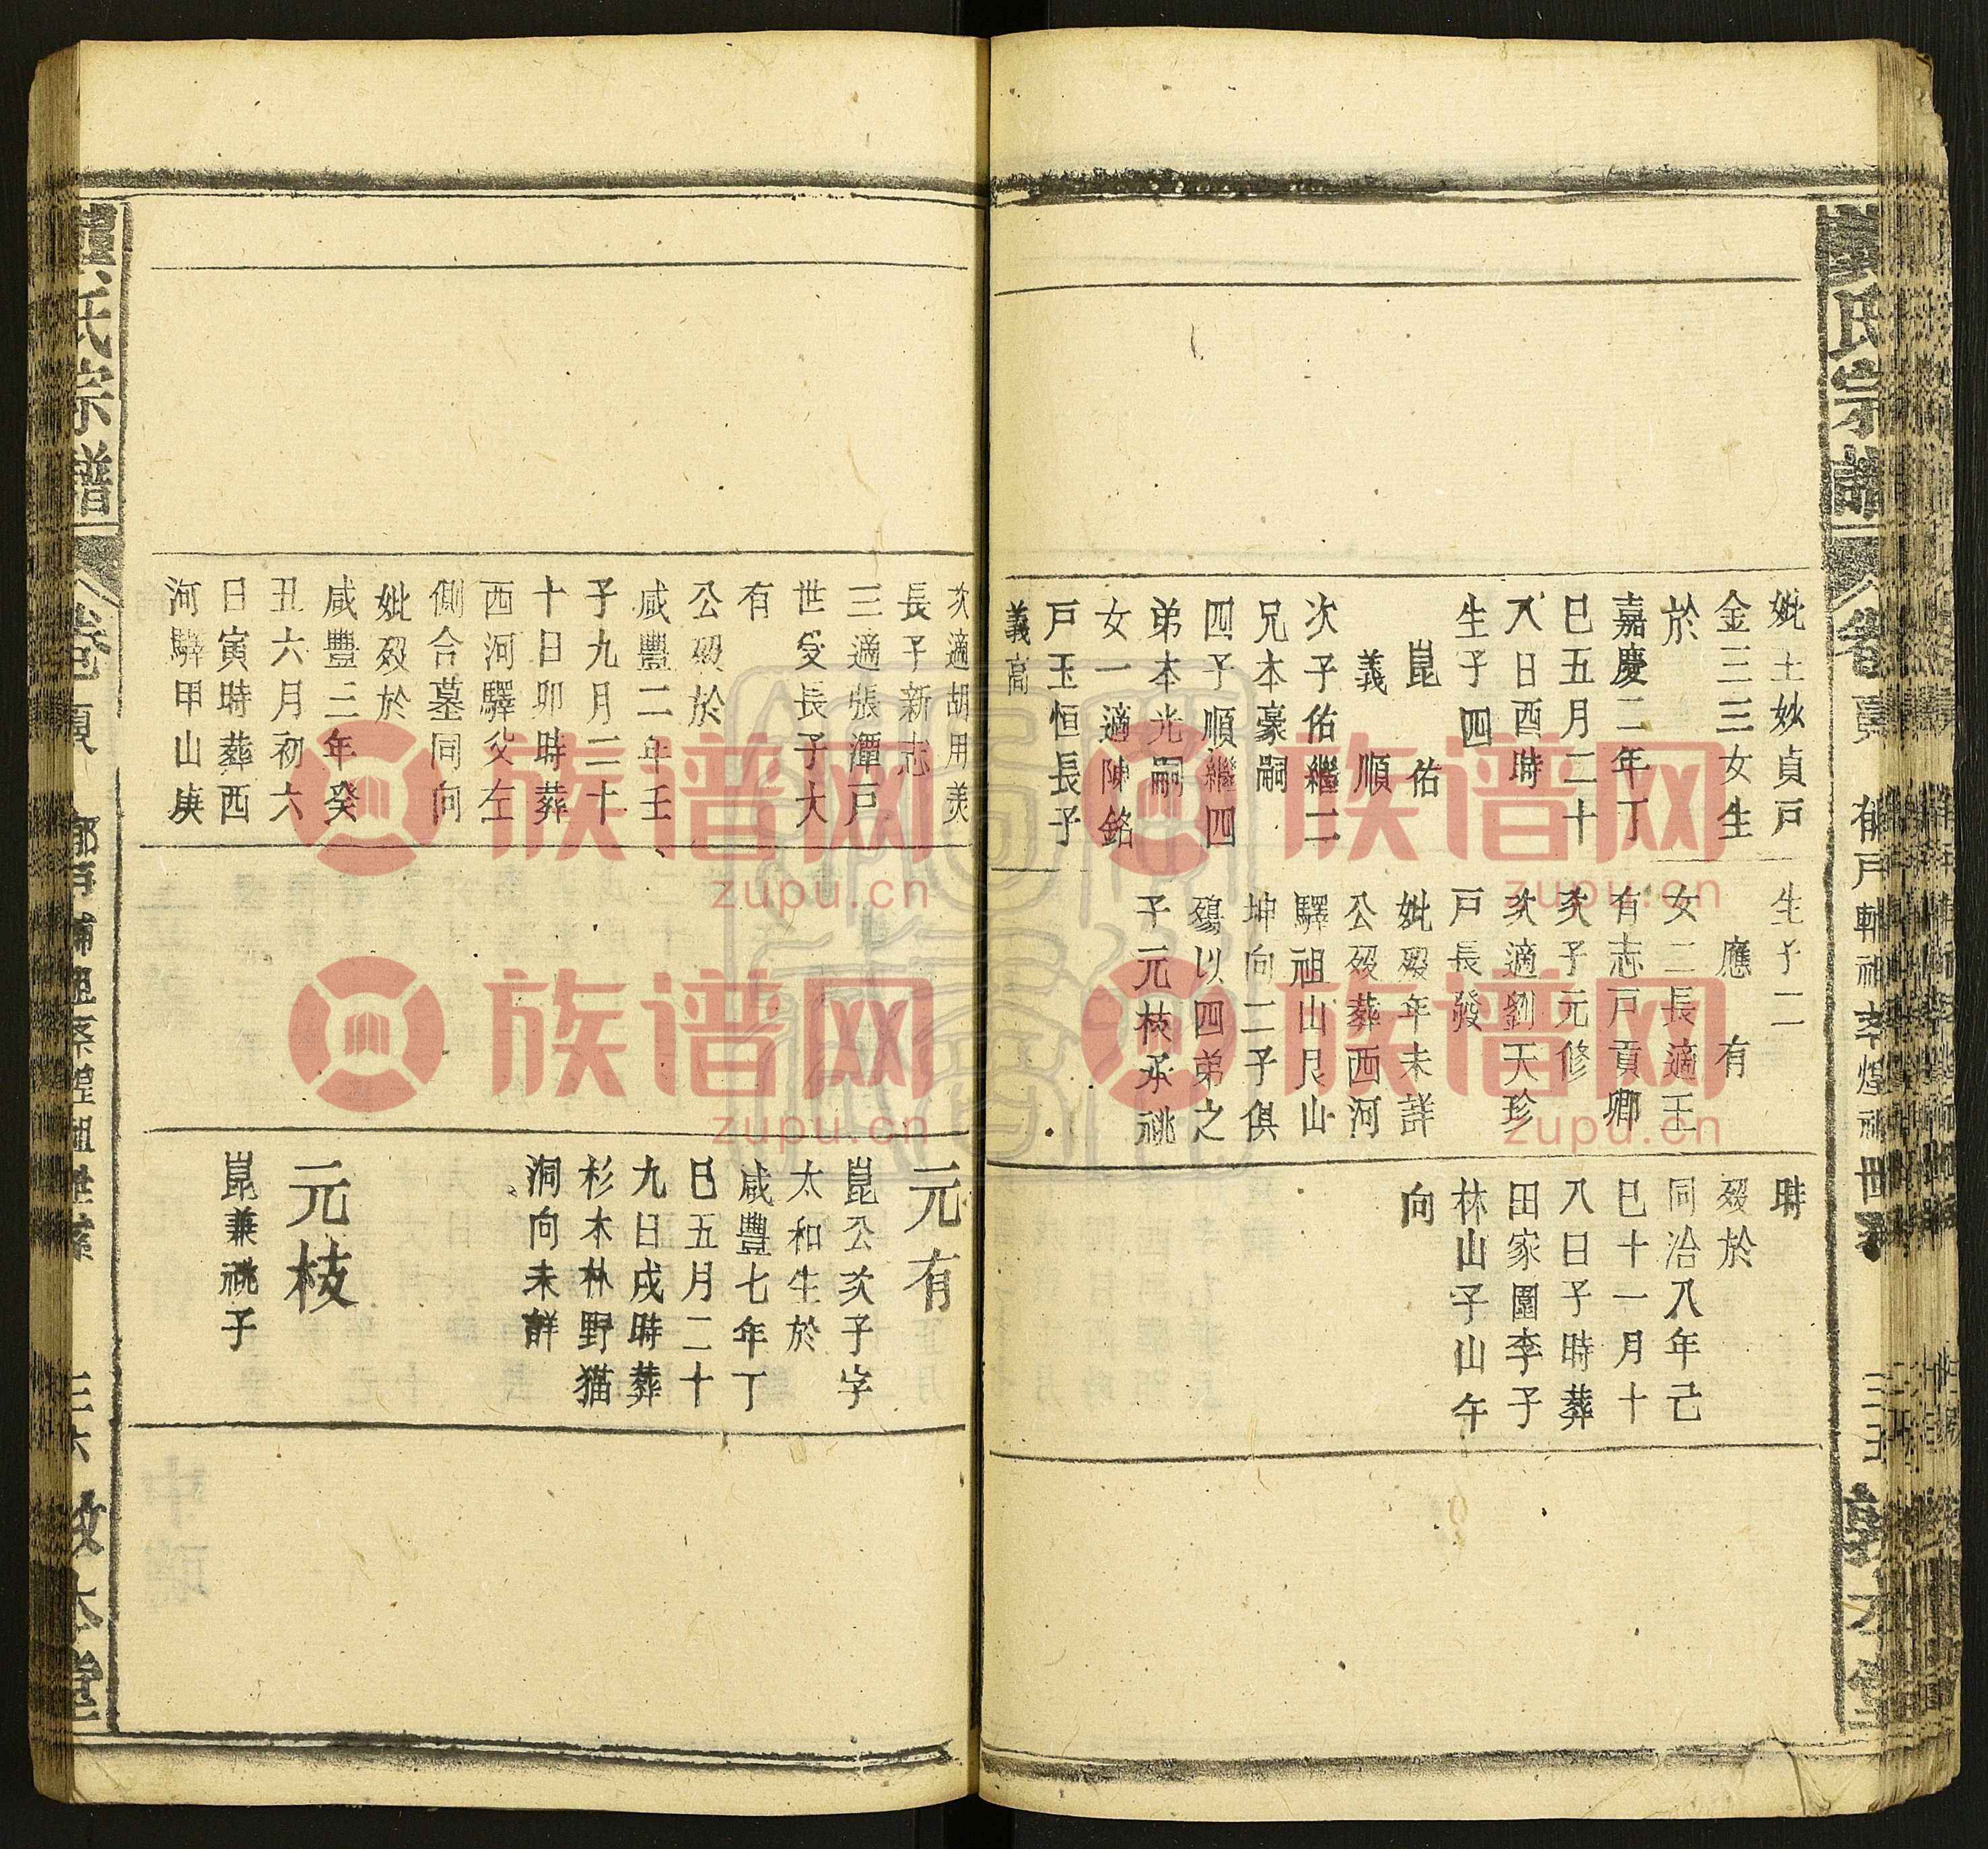 妣王妙貞戶
金三三女生
於
嘉慶二年丁
巳五月二十
八日酉時
生子四
崑 佑
義 順
次子佑繼二
兄本豪嗣
四子順繼四
弟本光嗣
女一適陳銘
戶玉恒長子
義高
生子二
應 有
女二長適王
有志戶貢卿
次子元修
次適劉天珍
戶長發
妣歿年未詳
公歿葬西河
驛祖山艮山
坤向二子俱
殤以四弟之
子元枝承祧
時
歿於
同治八年己
巳十一月十
八日子時葬
田家園李子
林山子山午
向
次適胡用美
長子新志
三適張潭戶
世爻長子大
有
公歿於
咸豐二年壬
子九月二十
十日卯時葬
西河驛父左
側合墓同向
妣歿於
咸豐三年癸
丑六月初六
日寅時葬西
河驛甲山庚
元有
崑公次子字
太和生於
咸豐七年丁
巳五月二十
九日戌時葬
杉木林野猫
洞向未詳
元枝
崑兼祧子
氏宗譜
卷
三六
族谱网
zupu.cn
族谱网
zupu.cn
族谱网
zupu.cn
族谱网
zupu.cn